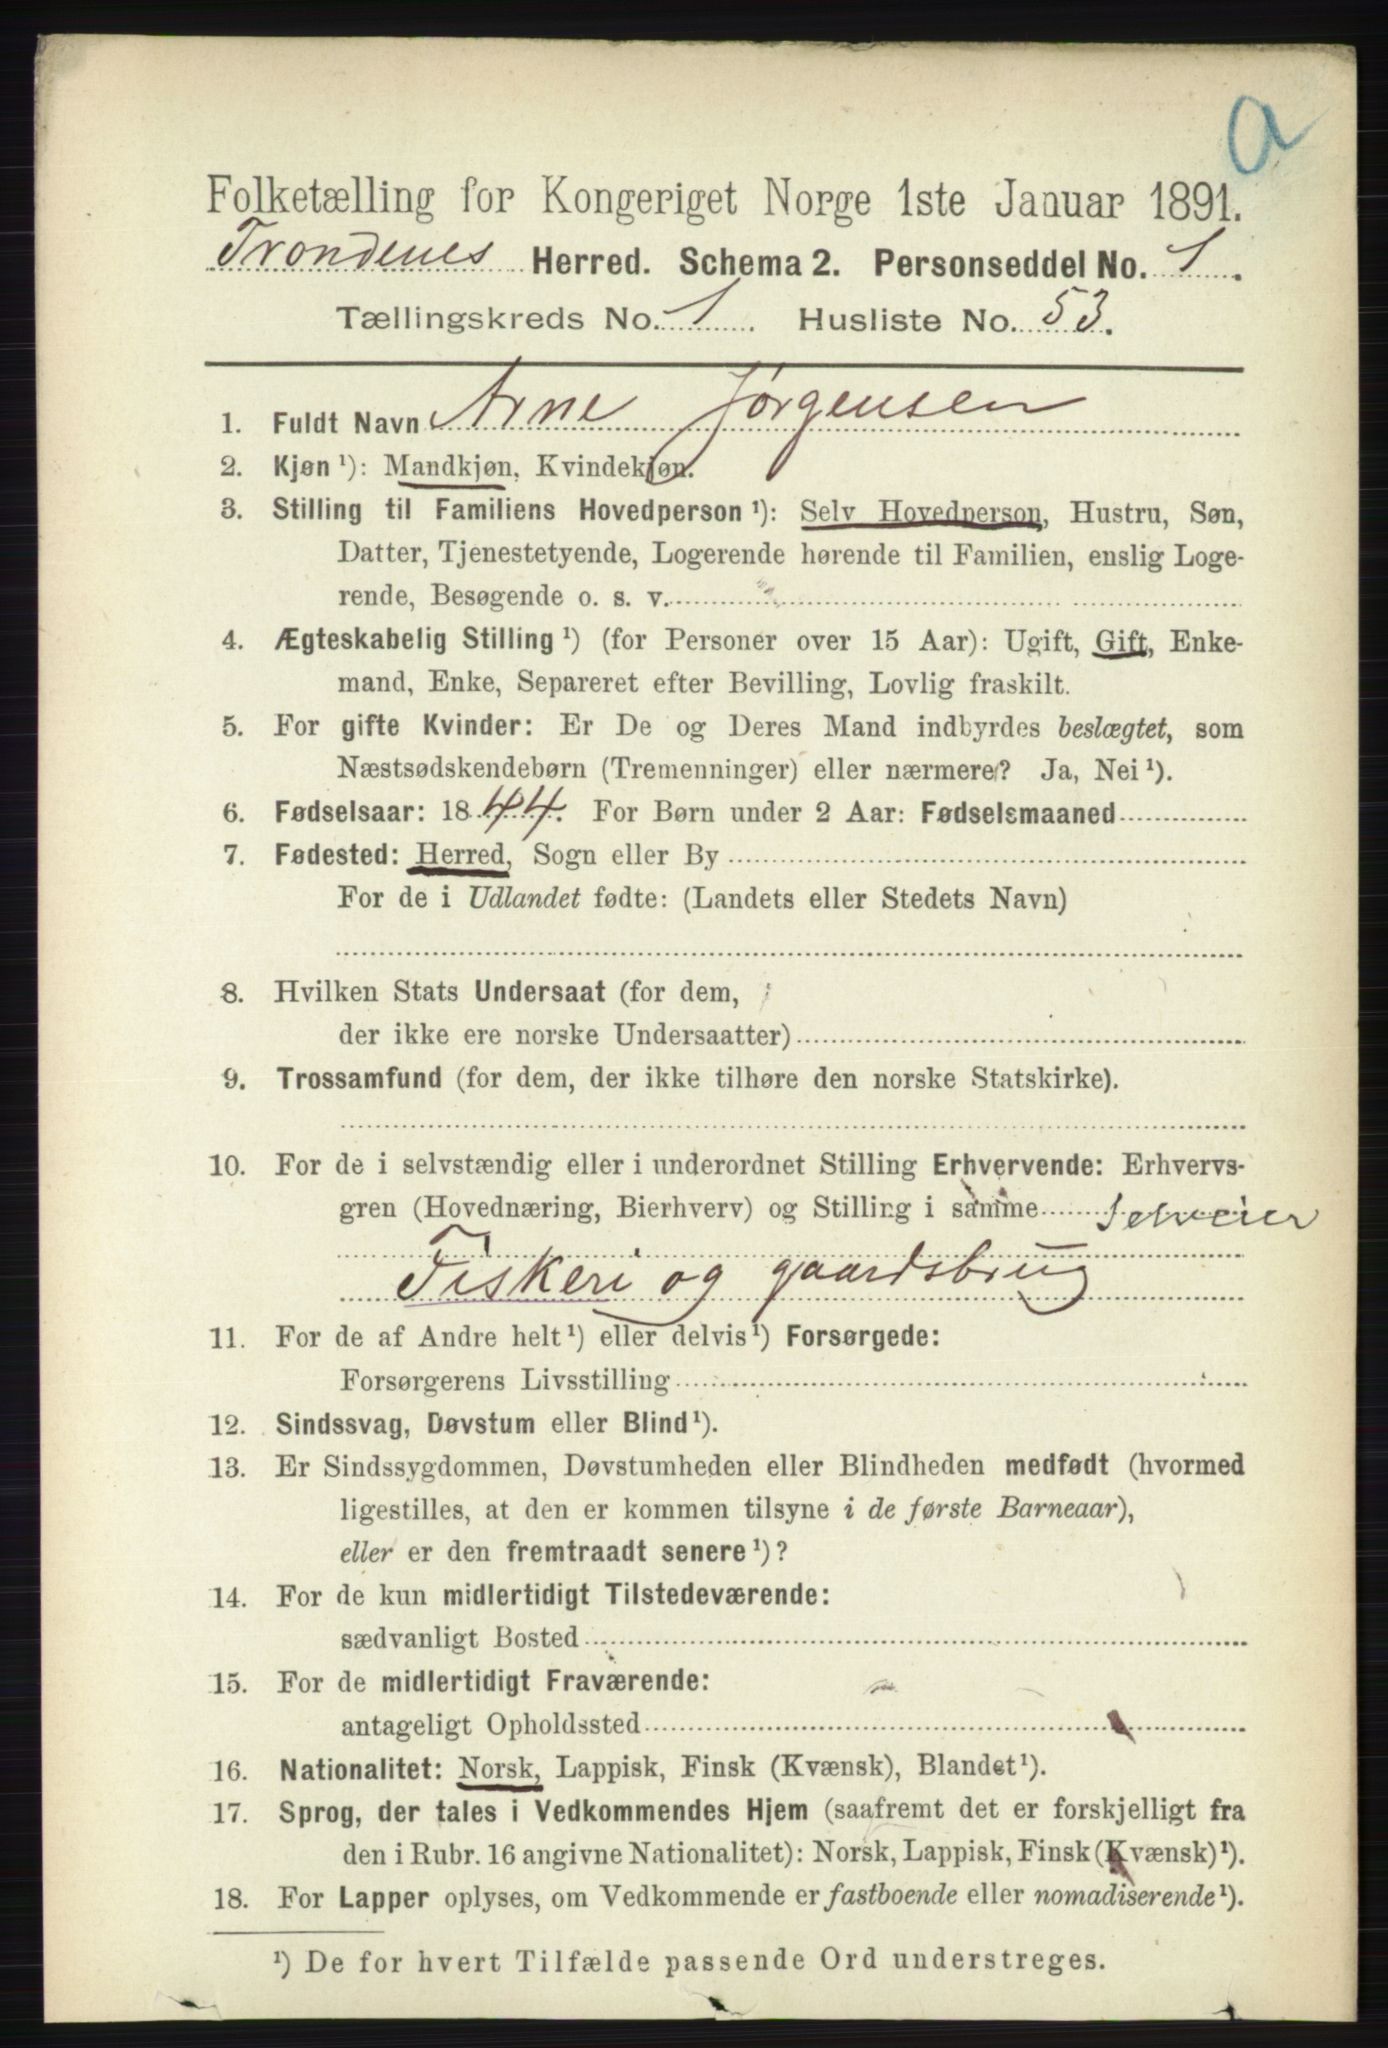 a
Folketælling for Kongeriget Norge 1ste Januar 1891.
Trondenes Herred. Schema 2. Personseddel No. 1.
Tællingskreds No. 1. Husliste No. 53.
1. Fuldt Navn Arne Jørgensen
2. Kjøn ¹): Mandkjøn, Kvindekjøn.
3. Stilling til Familiens Hovedperson ¹): Selv Hovedperson, Hustru, Søn,
Datter, Tjenestetyende, Logerende hørende til Familien, enslig Loge-
rende, Besøgende o. s. v.
4. Ægteskabelig Stilling ¹) (for Personer over 15 Aar): Ugift, Gift, Enke-
mand, Enke, Separeret efter Bevilling, Lovlig fraskilt.
5. For gifte Kvinder: Er De og Deres Mand indbyrdes beslægtet, som
Næstsødskendebørn (Tremenninger) eller nærmere? Ja, Nei ¹).
6. Fødselsaar: 1844. For Børn under 2 Aar: Fødselsmaaned
7. Fødested: Herred, Sogn eller By
For de i Udlandet fødte: (Landets eller Stedets Navn)
8. Hvilken Stats Undersaat (for dem,
der ikke ere norske Undersaatter)
9. Trossamfund (for dem, der ikke tilhøre den norske Statskirke).
10. For de i selvstændig eller i underordnet Stilling Erhvervende: Erhvervs-
gren (Hovednæring, Bierhverv) og Stilling i samme Selveier
Fiskeri og gaardsbrug
11. For de af Andre helt ¹) eller delvis ¹) Forsørgede:
Forsørgerens Livsstilling
12. Sindssvag, Døvstum eller Blind ¹).
13. Er Sindssygdommen, Døvstumheden eller Blindheden medfødt (hvormed
ligestilles, at den er kommen tilsyne i de første Barneaar),
eller er den fremtraadt senere ¹)?
14. For de kun midlertidigt Tilstedeværende:
sædvanligt Bosted
15. For de midlertidigt Fraværende:
antageligt Opholdssted
16. Nationalitet: Norsk, Lappisk, Finsk (Kvænsk), Blandet ¹).
17. Sprog, der tales i Vedkommendes Hjem (saafremt det er forskjelligt fra
den i Rubr. 16 angivne Nationalitet): Norsk, Lappisk, Finsk (Kvænsk) ¹).
18. For Lapper oplyses, om Vedkommende er fastboende eller nomadiserende ¹).
¹) De for hvert Tilfælde passende Ord understreges.